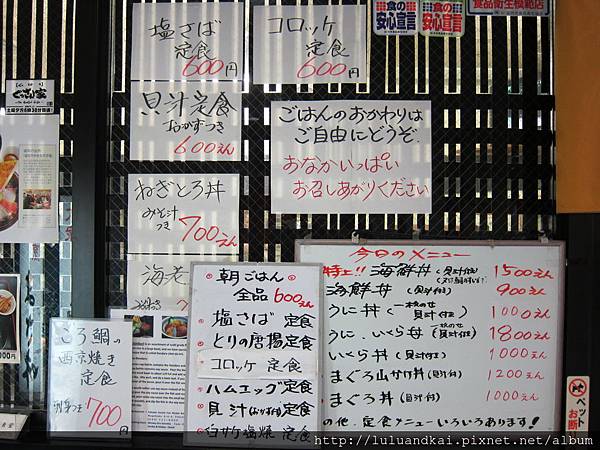 塩さば
定食
600円
コロッケ
定食
600円
食の
安心宣言
食の
安心宣言
食品衛生模範店
貝汁定食
おかずつき
600えん
ごはんのおかわりは
ご自由にどうぞ
おなかいっぱい
お召しあがりください
ねぎとろ丼
みそ汁
つき
700えん
海老
朝ごはん
全品600えん
塩さば 定食
とりの唐揚定食
コロッケ 定食
ハムエッグ定食
貝汁(おかずつき)定食
白サケ塩焼 定食
今日のメニュー
特上!!海鮮丼(貝汁付き) 1500えん
海鮮丼(貝汁付き) 900えん
うに丼 (貝汁付き) 1000えん
うに、いくら丼 (貝汁付き) 1800えん
いくら丼(貝汁付き) 1000えん
まぐろ山かけ丼(貝汁付) 1200えん
まぐろ丼(貝汁付) 1000えん
の他、定食メニューいろいろあります!
ころ鯛の
西京焼き
定食
700
ペット
お断り
http://luluandkai.pixnet.net/album